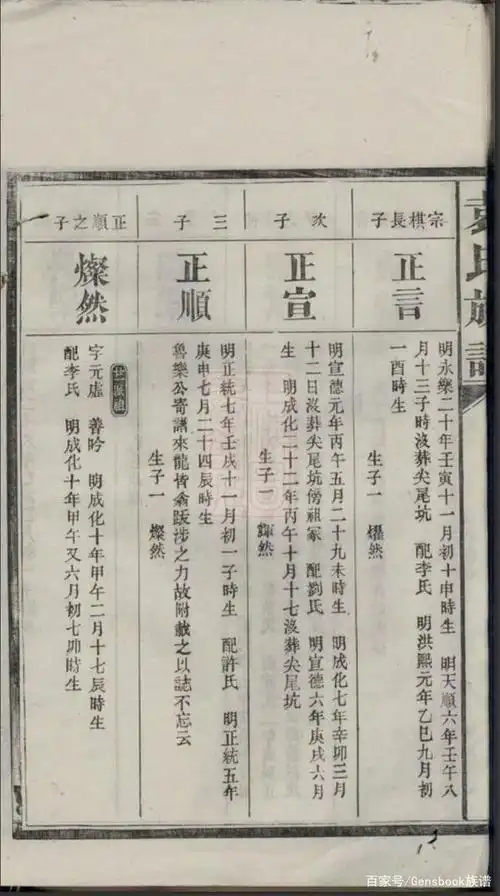 袁氏族譜
宗棋長子
正言
明永樂二十年壬寅十一月初十申時生 明天順六年壬午八
月十三子時沒葬尖尾坑 配李氏 明洪熙元年乙巳九月初
一酉時生
生子一 燿然
次子
正宣
明宣德元年丙午五月二十九未時生 明成化七年辛卯三月
十二日沒葬尖尾坑傍祖冢 配劉氏 明宣德六年庚戌六月
生 明成化二十二年丙午十月十七沒葬尖尾坑
生子一 輝然
三子
正順
明正統七年壬戌十一月初一子時生 配許氏 明正統五年
庚申七月二十四辰時生
魯樂公寄譜來龍皆翕跋涉之力故附載之以誌不忘云
生子一 燦然
正順之子
燦然
字元虛 善吟 明成化十年甲午二月十七辰時生
配李氏 明成化十年甲午又六月初七卯時生
百家号/Gensbook族谱